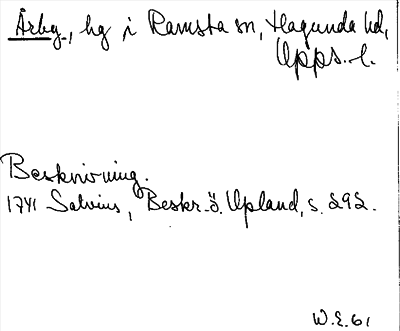 Årby, hg i Ramsta sn, Hagunda hd,
Upps. l.
Beskrivning.
1741 Salvius, Beskr. ö. Upland, s. 292.
W.E. 61